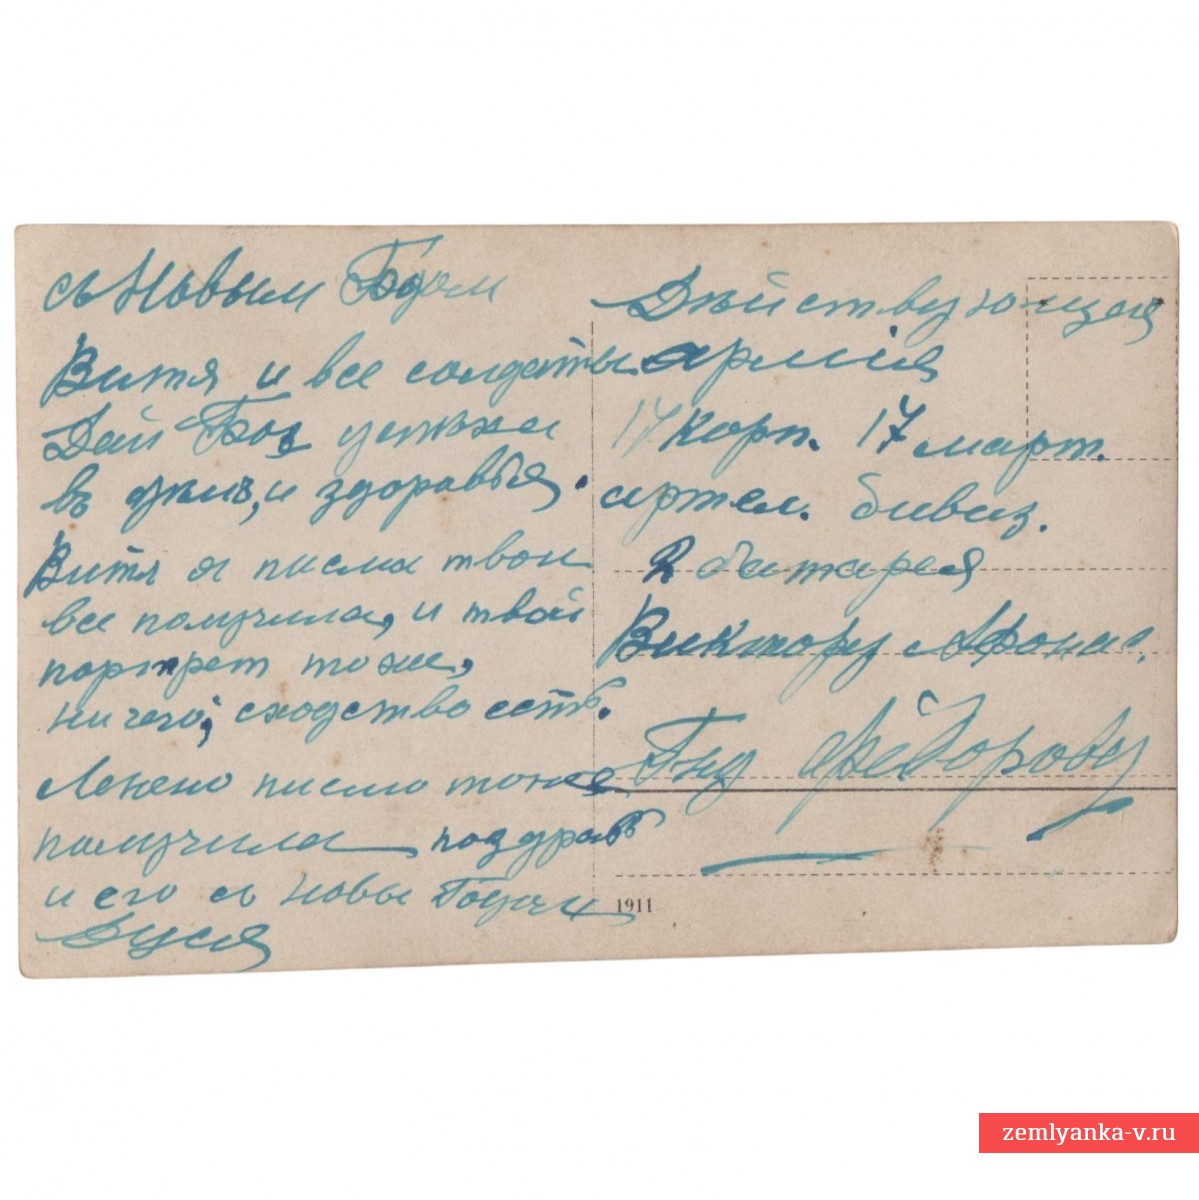 съ Новым Годом
Витя и все солдаты
Дай Бог успѣха
въ дѣле, и здоровья.
Витя я писма твои
все получила, и твой
портрет тоже,
ничего, сходство есть.
Ленено писмо тоже
получила поздравь
и его съ новы Годом
Дуся
Дѣйствующая
армія
17 Корп. 17 март.
артел. дивиз.
2 батарея
Виктору Афонас.
Гну Фёдорову
1911
zemlyanka-v.ru